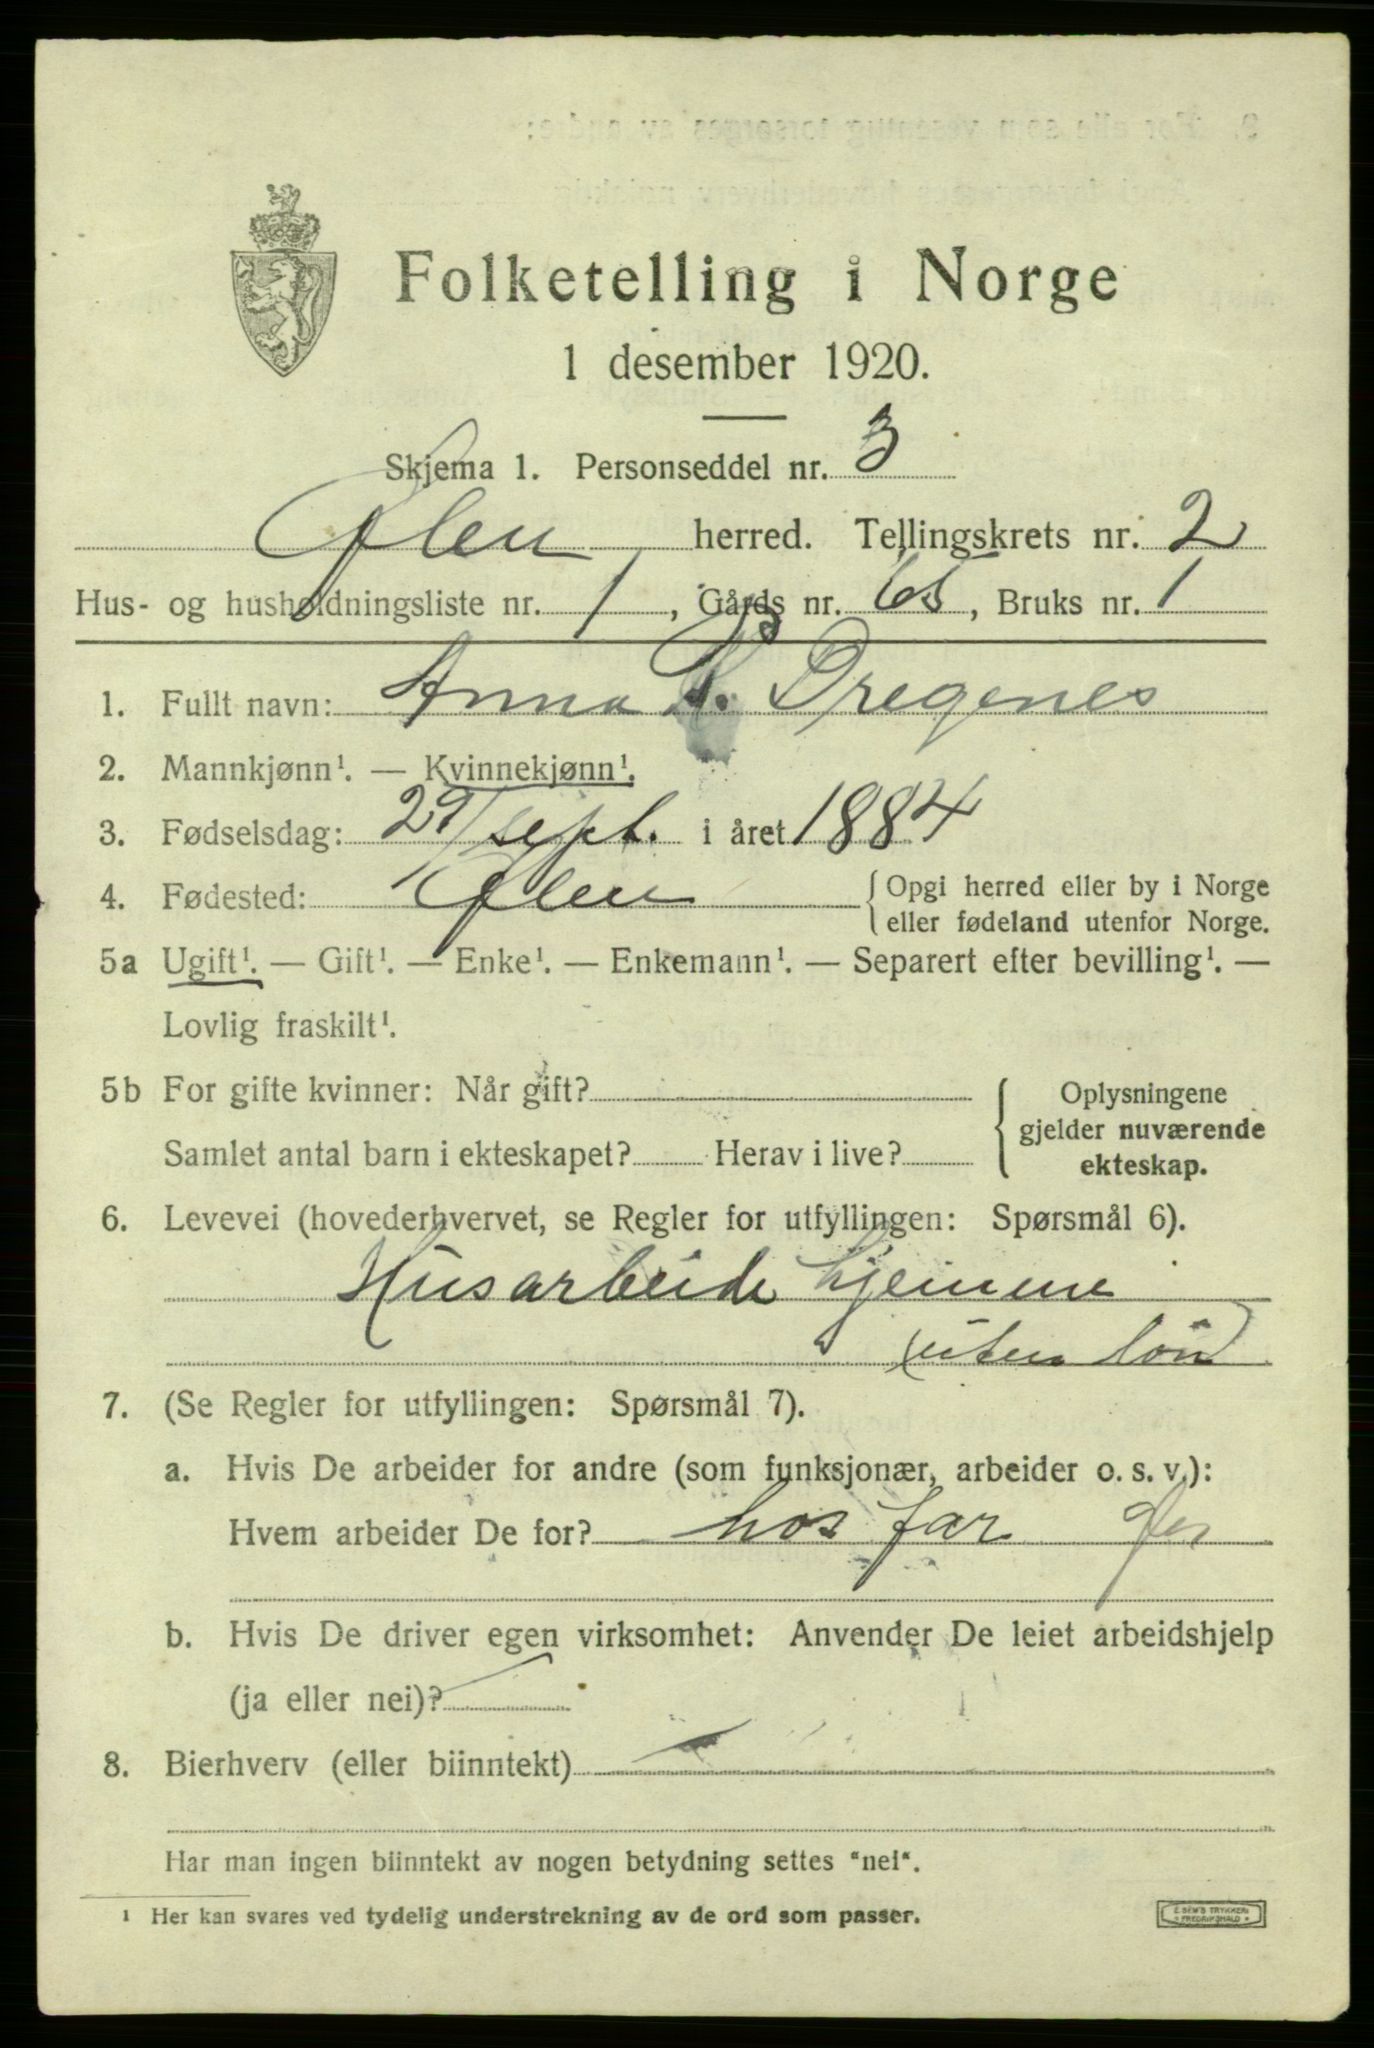 Folketelling i Norge
1 desember 1920.
Skjema 1. Personseddel nr. 3
Ølen herred. Tellingskrets nr. 2
Hus- og husholdningsliste nr. 1, Gårds nr. 65, Bruks nr. 1
1. Fullt navn: Anna B. Dregenes
2. Mannkjønn¹. — Kvinnekjønn¹.
3. Fødselsdag: 29/sept. i året 1884
4. Fødested: Ølen {Opgi herred eller by i Norge
eller fødeland utenfor Norge.
5a Ugift¹. — Gift¹. — Enke¹. — Enkemann¹. — Separert efter bevilling¹. —
Lovlig fraskilt¹.
5b For gifte kvinner: Når gift? { Oplysningene
gjelder nuværende
Samlet antal barn i ekteskapet? Herav i live? ekteskap.
6. Levevei (hovederhvervet, se Regler for utfyllingen: Spørsmål 6).
Husarbeide hjemme
(uten løn)
7. (Se Regler for utfyllingen: Spørsmål 7).
a. Hvis De arbeider for andre (som funksjonær, arbeider o. s. v.):
Hvem arbeider De for? hos far
b. Hvis De driver egen virksomhet: Anvender De leiet arbeidshjelp
(ja eller nei)?
8. Bierhverv (eller biinntekt)
Har man ingen biinntekt av nogen betydning settes "nei".
¹ Her kan svares ved tydelig understrekning av de ord som passer.
E. SEM'S TRYKKERI
FREDRIKSHALD